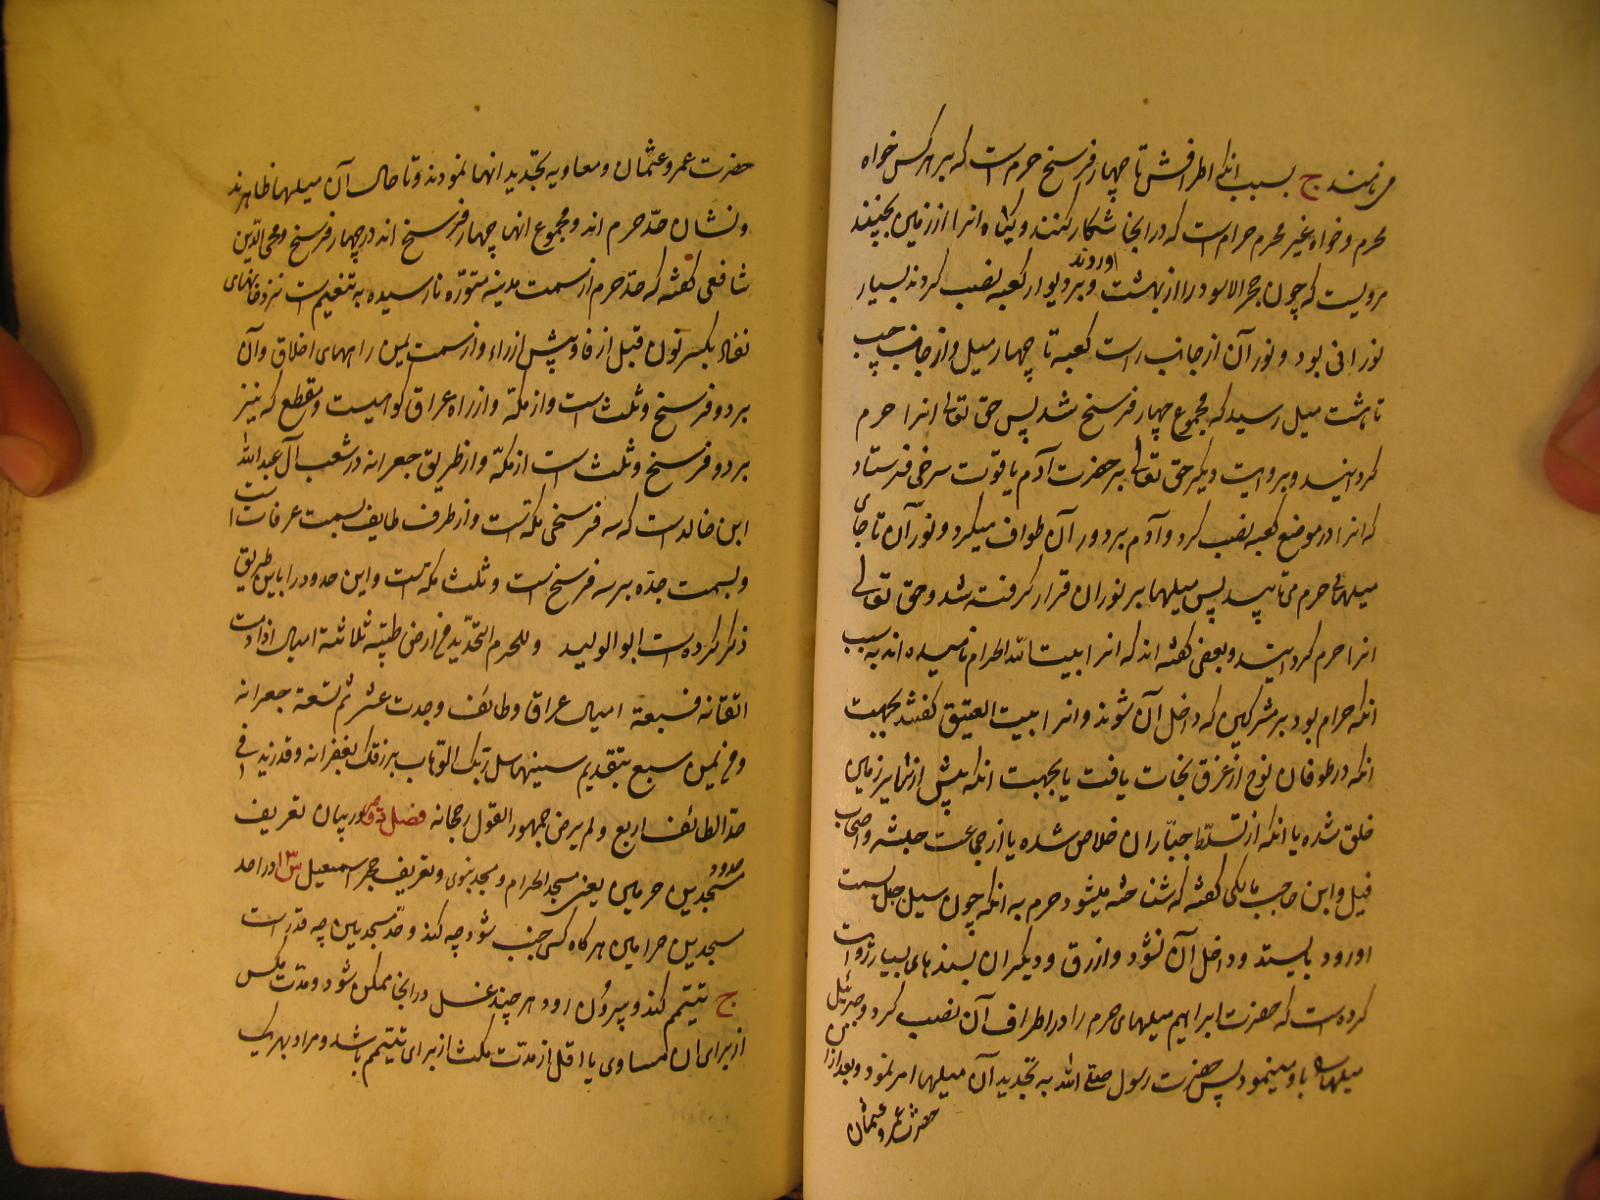 می نامند ج بسبب انکه اطرافش تا چهار فرسخ حرم است که بر هر کس خواه
محرم و خواه غیر محرم حرام است که در انجا شکار کنند و یا کیاه انرا از زمین بچینند
مرویست که چون حجر الاسود را از بهشت اوردند و بر دیوار کعبه نصب کردند بسیار
نورانی بود و نور آن از جانب راست کعبه تا چهار میل و از جانب چپ
تا هشت میل رسید که مجموع چهار فرسخ شد پس حق تعالی انرا حرم
کردانید و بروایت دیکر حق تعالی بر حضرت آدم یاقوت سرخی فرستاد
که انرا در موضع کعبه نصب کرد و آدم بر دور آن طواف میکرد و نور آن تا جای
میلهای حرم می تابید پس میلها بر نور ان قرار کرفته شد و حق تعالی
انرا حرم کردانید و بعضی کفته اند که انرا بیت الله الحرام نامیده اند به سبب
انکه حرام بود بر مشرکین که داخل آن شوند و انرا بیت العتیق کفتند بجهت
انکه در طوفان نوح از غرق نجات یافت یا بجهت انکه پیش از انها بر زمین
خلق شده یا انکه از تسلط جباران خلاص شده یا از جماعت حبشه و اصحاب
فیل و ابن حاجب مالکی کفته که شناخته میشود حرم به انکه چون سیل حل بسمت
او رود بایستد و داخل آن نشود و ازرقی و دیکران بسندهای بسیار روایت
کرده است که حضرت ابراهیم میلهای حرم را در اطراف آن نصب کرد و جبرئیل
میلها را باو مینمود پس حضرت رسول صلی الله به تجدید آن میلها امر نمود و بعد از ان
حضرت عمر و عثمان
حضرت عمر و عثمان و معاویه تجدید انها نمودند و تا حال آن میلها ظاهرند
و نشان حد حرم اند و مجموع انها چهار فرسخ اند در چهار فرسخ و محی الدین
شافعی کفته که حد حرم از سمت مدینه منوره نارسیده به تنعیم است نزد خانهای
نفار بکسر نون قبل از فا و پیش از راء و از سمت یمن راههای اضلاق و آن
بر دو فرسخ و ثلث است از مکه و از راه عراق کوهیست و مقطع که نیز
بر دو فرسخ و ثلث است از مکه و از طریق جعرانه در شعب آل عبد الله
ابن خالد است که سه فرسخی مکه است و از طرف طایف بسمت عرفات است
و بسمت جده بر سه فرسخ است و ثلث مکه است و این حدود را باین طریق
ذکر کرده است ابو الولید و للحرم التحدید فی ارض طیبه ثلاثة امیال اذا رمت
اتقانه فسبعة امیال عراق و طائف و جدت عشر ثم تسعة جعرانه
و فی یمن سبع بتقدیم سینها سل ربک الوهاب یرزقک بغفرانه و قد زید فی
حد الطائف اربع و لم یرض جمهور القول رجحانه فصل دوم در بیان تعریف
حدود مسجدین حرمین یعنی مسجد الحرام و مسجد نبوی و تعریف حجر اسمعیل س در احد
مسجدین حرامین هر کاه کسی جنب شود چه کند و حد مسجدین چه قدر است
ج تیمم کند و بیرون رود هر چند غسل در انجا ممکن شود و مدت مکس
از برای ان مساوی یا اقل از مدت مکث از برای تیمم باشد و مراد بهر یک